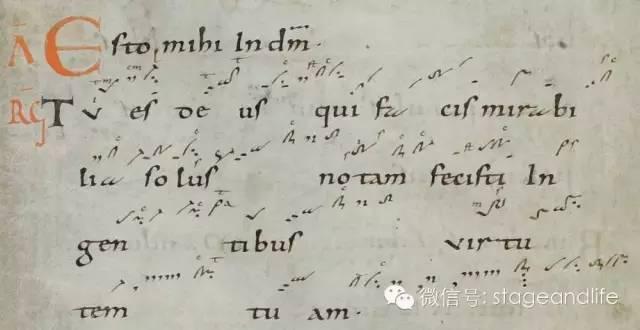 A Esto mihi In dm̄.
RG Tu es deus qui facis mirabi
lia solus notam fecisti In
gentibus virtu
tem tuam.
微信号: stageandlife